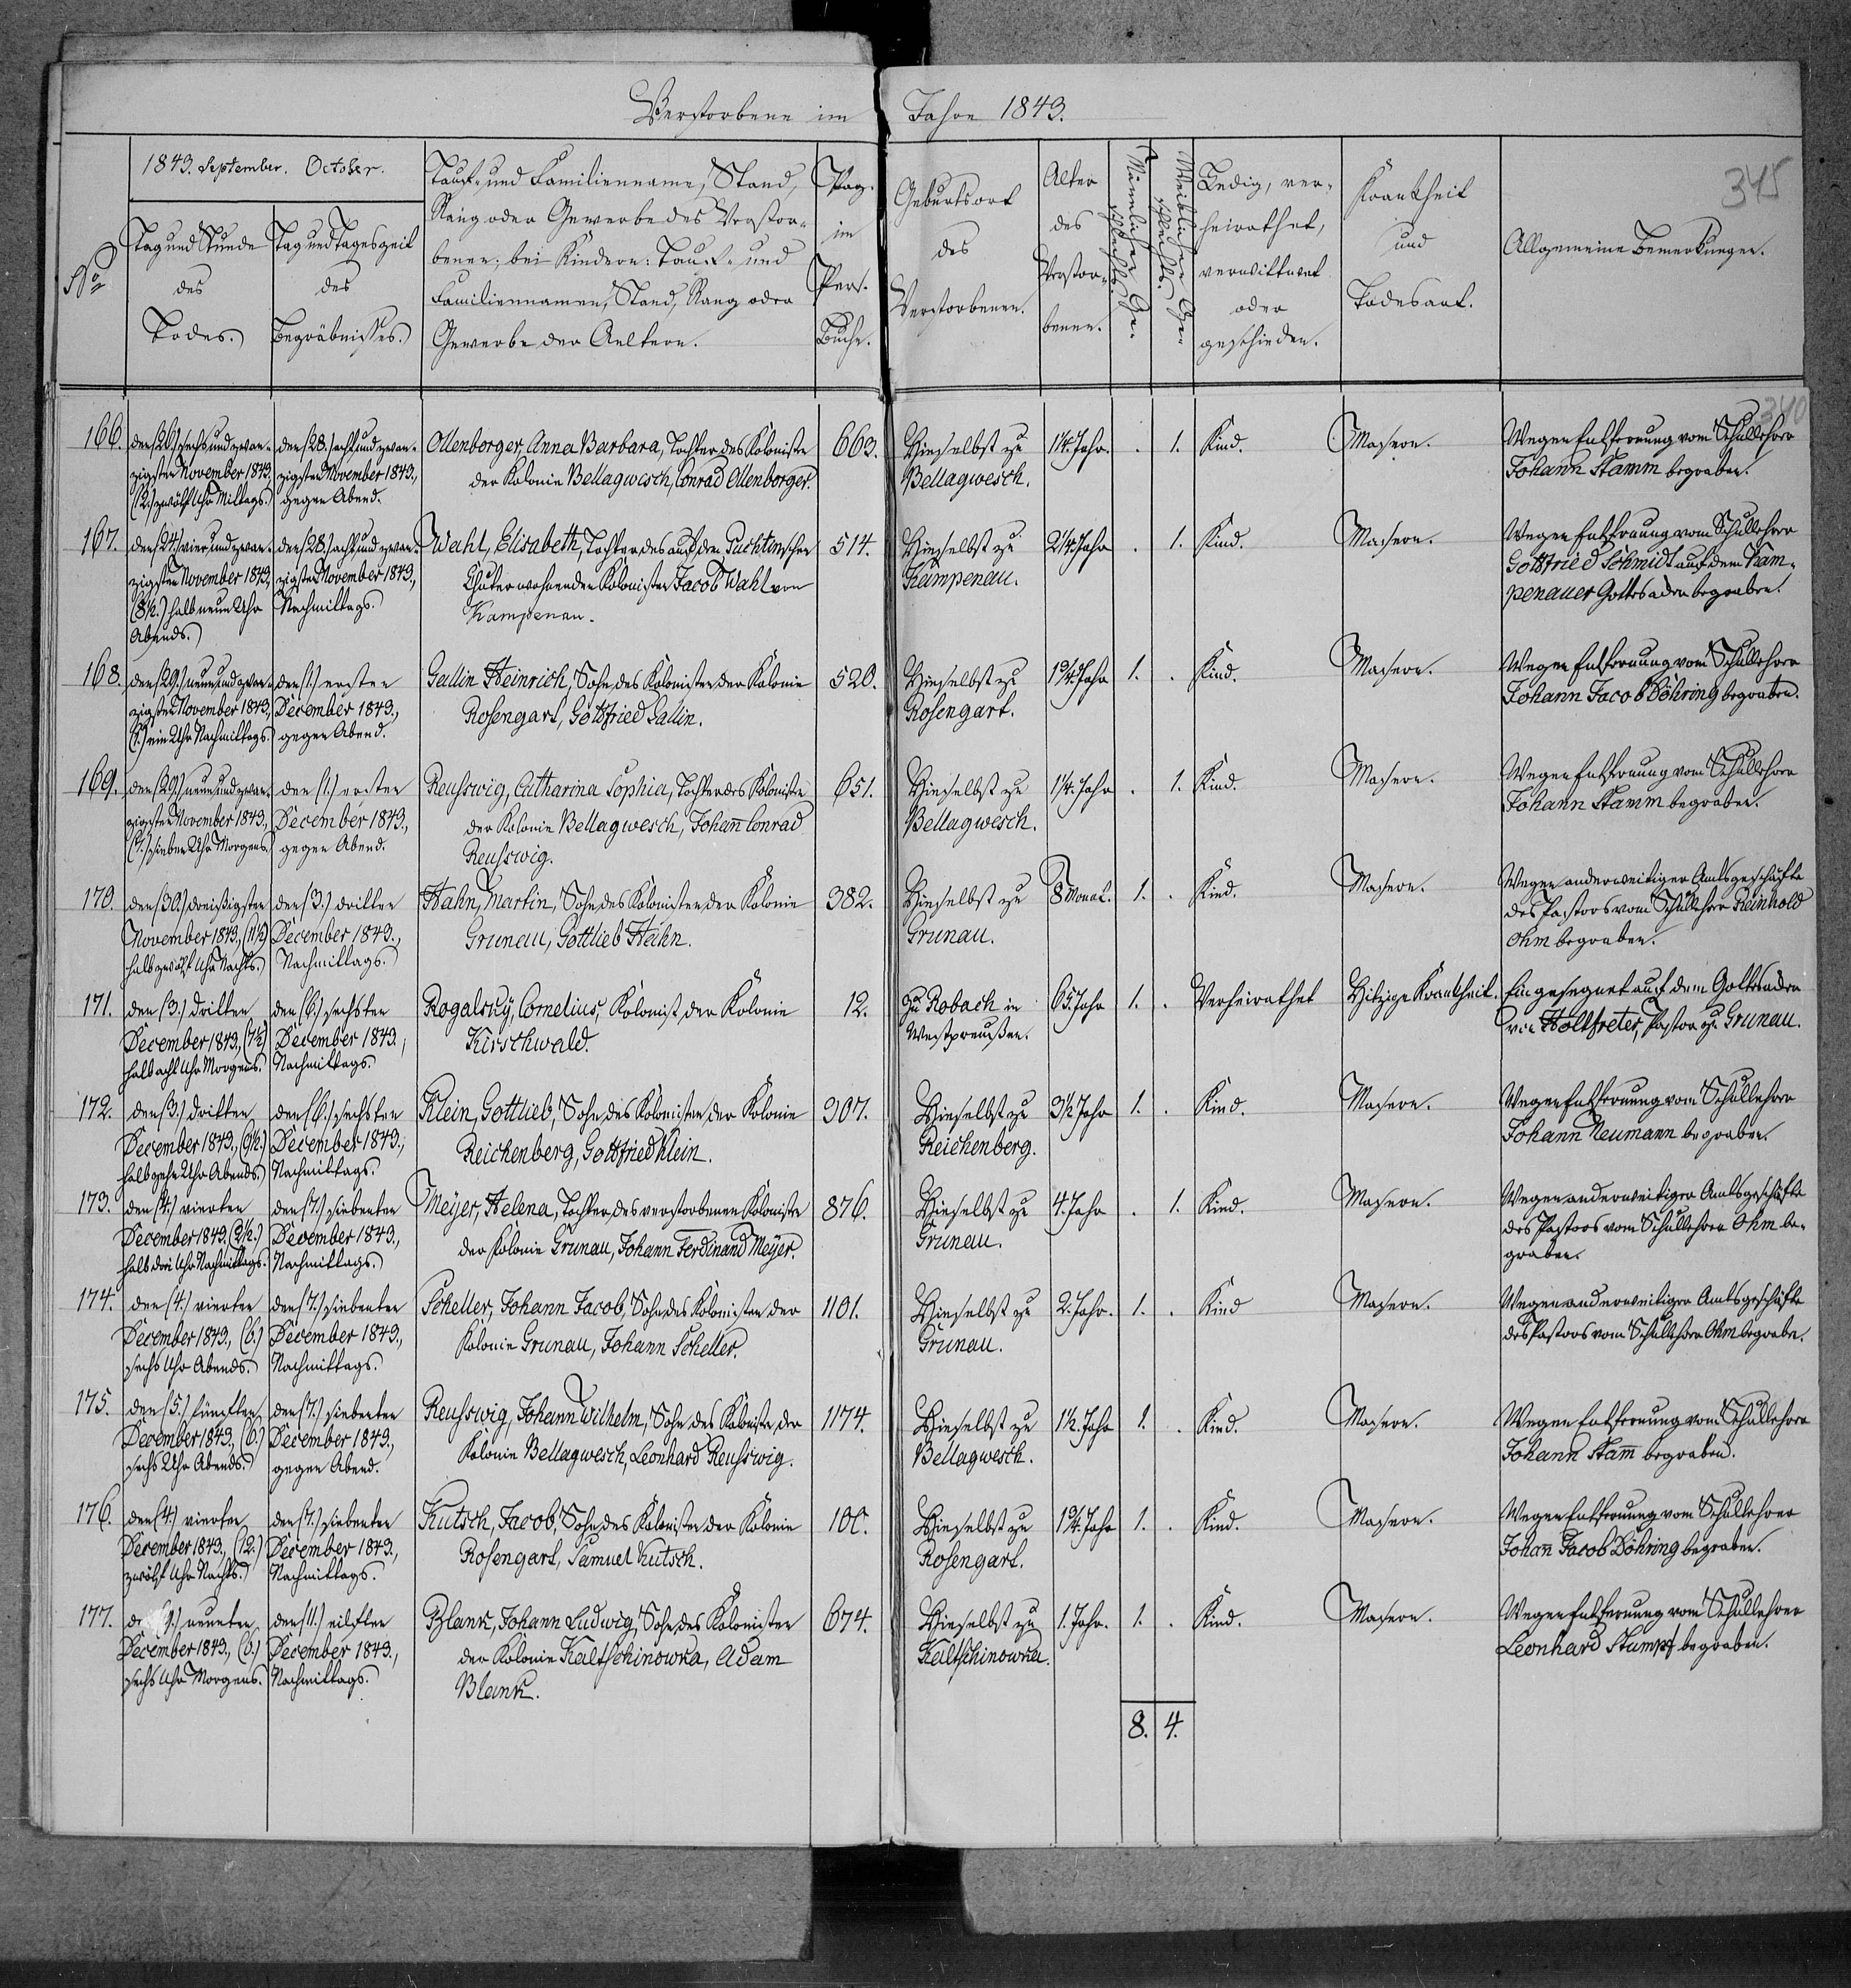 Verstorbene im Jahre 1843.
345
340
1843. September. October.
No
Tag und Stunde
des
Todes.
Tag und Tageszeit
des
Begräbnisses.
Tauf- und Familienname, Stand,
Rang oder Gewerbe des Verstor-
benen; bei Kindern: Tauf- und
Familiennamen, Stand, Rang oder
Gewerbe der Aeltern.
Pag.
im
Pers.
Buche.
Geburtsort
des
Verstorbenen.
Alter
des
Verstor-
benen.
Männlichen Ge-
schlechts.
Weiblichen Ge-
schlechts.
Ledig, ver-
heirathet,
verwittwet
oder
geschieden.
Krankheit
und
Todesart.
Allgemeine Bemerkungen.
166.
den (26.) sechs und zwan-
zigsten November 1843,
(12.) zwölf Uhr Mittags.
den (28.) acht und zwan-
zigsten November 1843.,
gegen Abend.
Ollenborger, Anna Barbara, Tochter des Koloniste
der Kolonie Bellagwesch, Conrad Ollenborger.
663.
Hieselbst zu
Bellagwesch.
1 1/4. Jahr.
. 1. Kind.
Masern.
Wegen Entfernung vom Schullehrer
Johann Stamm begraben.
167.
den (24.) vier und zwan-
zigsten November 1843,
(8 1/2.) halb neun Uhr
Abends.
den (28.) acht und zwan-
zigsten November 1843.,
Nachmittags.
Wahl, Elisabeth, Tochter des auf den
Chutor wohnenden Kolonisten Jacob Wahl von
Kampenau.
514.
Hieselbst zu
Kampenau.
2 1/4. Jahr
. 1. Kind.
Masern.
Wegen Entfernung vom Schullehrer
Gottfried Schmidt auf dem Kam-
penauer Gottesacker begraben.
168.
den (29.) neun und zwan-
zigsten November 1843,
(1.) ein Uhr Nachmittags.
den (1.) ersten
December 1843.,
gegen Abend.
Gallin Heinrich, Sohn des Kolonisten der Kolonie
Rosengart, Gottfried Gallin.
520.
Hieselbst zu
Rosengart.
1 3/4. Jahr
1. . Kind.
Masern.
Wegen Entfernung vom Schullehrer
Johann Jacob Döhring begraben.
169.
den (29.) neun und zwan-
zigsten November 1843.,
(7.) sieben Uhr Morgens.
den (1.) ersten
December 1843.,
gegen Abend.
Reusswig, Catharina Sophia, Tochter des Koloniste
der Kolonie Bellagwesch, Johann Conrad
Reusswig.
651.
Hieselbst zu
Bellagwesch.
1 1/4. Jahr
. 1. Kind.
Masern.
Wegen Entfernung vom Schullehrer
Johann Stamm begraben.
170.
den (30.) dreißigsten
November 1843., (11 1/2)
halb zwölf Uhr Nachts.
den (3.) dritten
December 1843.,
Nachmittags.
Hahn, Martin, Sohn des Kolonisten der Kolonie
Grunau, Gottlieb Hahn.
382.
Hieselbst zu
Grunau.
8 Monat.
1. . Kind.
Masern.
Wegen anderweitiger Amtsgeschäfte
des Pastors vom Schullehrer Reinhold
Ohm begraben.
171.
den (3.) dritten
December 1843., (7 1/2)
halb acht Uhr Morgens.
den (6.) sechsten
December 1843.,
Nachmittags.
Rogalsky, Cornelius, Kolonist der Kolonie
Kirschwald.
12.
Zu Robach in
Westpreußen.
65. Jahr
1. . Verheirathet
Hitzige Krankheit.
Eingesegnet auf dem Gottesacker
von Holtfreter, Pastor zu Grunau.
172.
den (3.) dritten
December 1843., (9 1/2.)
halb zehn Uhr Abends.
den (6.) sechsten
December 1843.,
Nachmittags.
Klein, Gottlieb, Sohn des Kolonisten der Kolonie
Reichenberg, Gottfried Klein.
307.
Hieselbst zu
Reichenberg.
3 1/2 Jahr
1. . Kind.
Masern.
Wegen Entfernung vom Schullehrer
Johann Neumann begraben.
173.
den (4.) vierten
December 1843. (2 1/2.)
halb drei Uhr Nachmittags.
den (7.) siebenten
December 1843.,
Nachmittags.
Meyer, Helena, Tochter des verstorbenen Koloniste
der Kolonie Grunau, Johann Ferdinand Meyer.
876.
Hieselbst zu
Grunau.
4. Jahr
. 1. Kind.
Masern.
Wegen anderweitiger Amtsgeschäfte
des Pastors vom Schullehrer Ohm be-
graben.
174.
den (4.) vierten
December 1843., (6.)
sechs Uhr Abends.
den (7.) siebenten
December 1843.,
Nachmittags.
Scheller, Johann Jacob, Sohn des Kolonisten der
Kolonie Grunau, Johann Scheller.
1101.
Hieselbst zu
Grunau.
2. Jahr.
1. . Kind
Masern.
Wegen anderweitiger Amtsgeschäfte
des Pastors vom Schullehrer Ohm begraben.
175.
den (5.) fünften
December 1843., (6.)
sechs Uhr Abends.
den (7.) siebenten
December 1843.,
gegen Abend.
Reusswig, Johann Wilhelm, Sohn des Koloniste der
Kolonie Bellagwesch, Leonhard Reusswig.
1174.
Hieselbst zu
Bellagwesch.
1 1/2. Jahr
1. . Kind.
Masern.
Wegen Entfernung vom Schullehrer
Johann Stam̄ begraben.
176.
den (4.) vierten
December 1843., (12.)
zwölf Uhr Nachts.
den (7.) siebenten
December 1843.,
Nachmittags.
Kutsch, Jacob, Sohn des Kolonisten der Kolonie
Rosengart, Samuel Kutsch.
Hieselbst zu
Rosengart.
1 3/4. Jahr
1. . Kind.
Masern.
Wegen Entfernung vom Schullehrer
Johan̄ Jacob Döhring begraben.
177.
(9.) neunten
December 1843., (6.)
sechs Uhr Morgens.
den (11.) eilften
December 1843.,
Nachmittags.
Blank, Johann Ludwig, Sohn des Kolonisten
der Kolonie Kaltschinowka, Adam
Blank.
674.
Hieselbst zu
Kaltschinowka.
1. Jahr.
1. . Kind.
Masern.
Wegen Entfernung vom Schullehrer
Leonhard Stumpf begraben.
8. 4.